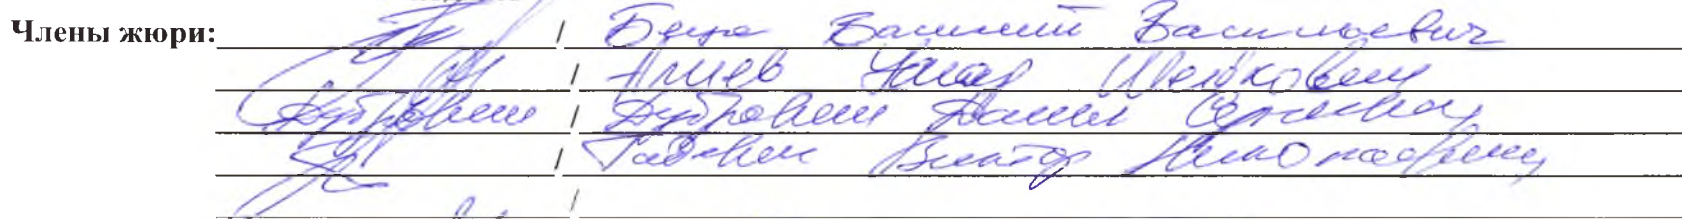 Члены жюри: / Беца Василий Васильевич
/ Алиев
Дубровин / Дубровин Данил Сергеевич
/ Виктор Николаевич
/